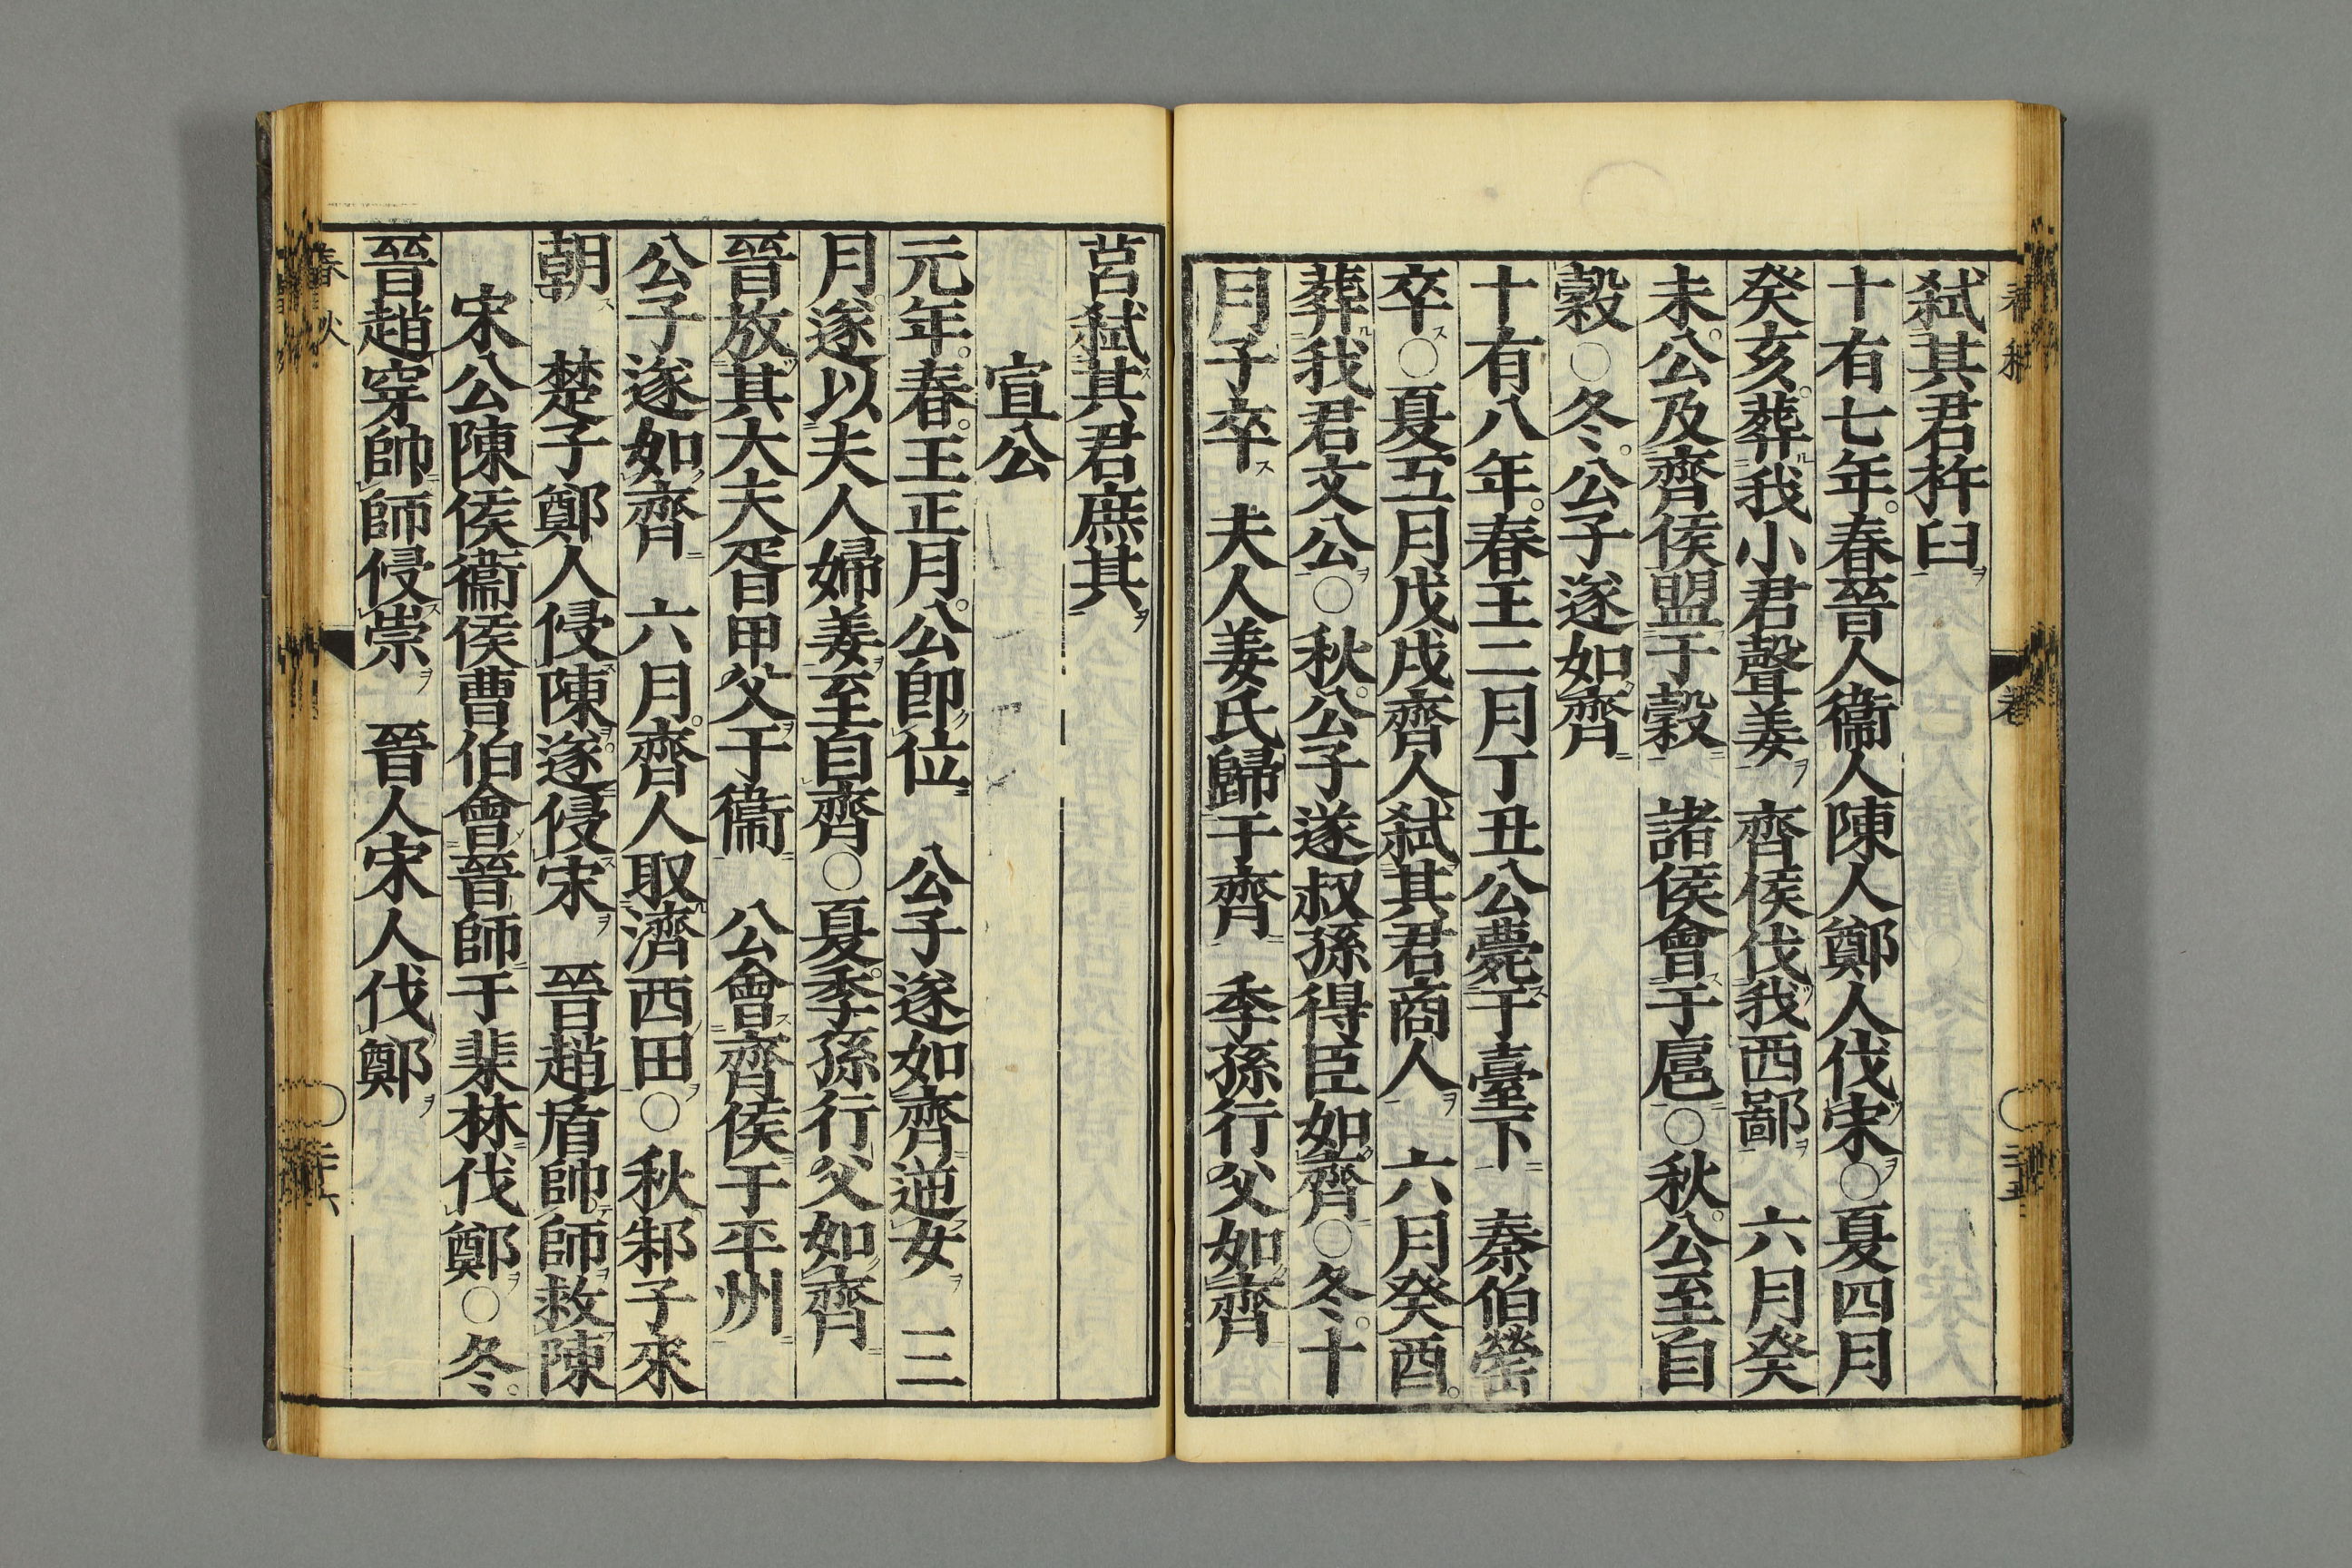 弑其君杵臼
十有七年。春晉人衞人陳人鄭人伐宋○夏四月
癸亥。葬我小君聲姜　齊侯伐我西鄙　六月癸
未。公及齊侯盟于穀　諸侯會于扈○秋。公至自
穀○冬。公子遂如齊
十有八年。春王二月丁丑公薨于臺下　秦伯罃
卒○夏五月戊戌齊人弑其君商人　六月癸酉。
葬我君文公○秋。公子遂叔孫得臣如齊○冬。十
月子卒　夫人姜氏歸于齊　季孫行父如齊
莒弑其君庶其
宣公
元年。春。王正月。公卽位　公子遂如齊逆女　三
月。遂以夫人婦姜至自齊○夏。季孫行父如齊
晉放其大夫胥甲父于衞　公會齊侯于平州
公子遂如齊　六月。齊人取濟西田○秋邾子來
朝　楚子鄭人侵陳。遂侵宋　晉趙盾帥師救陳
宋公陳侯衞侯曹伯會晉師于棐林伐鄭○冬。
晉趙穿帥師侵崇　晉人宋人伐鄭
春秋